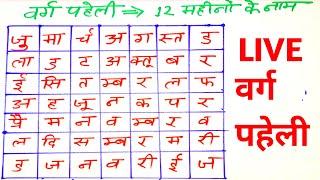 वर्ग पहेली ⇒ 12 महीनो के नाम
जु मा र्च अ ग स्त ड
ला ड ट अ क्तू ब र
ई सि त म्ब र ल फ
अ ह जू न क प र
प्रै म न व म्ब र व
ल दि स म्ब र म री
ड ज न व री ई ज
LIVE
वर्ग
पहेली